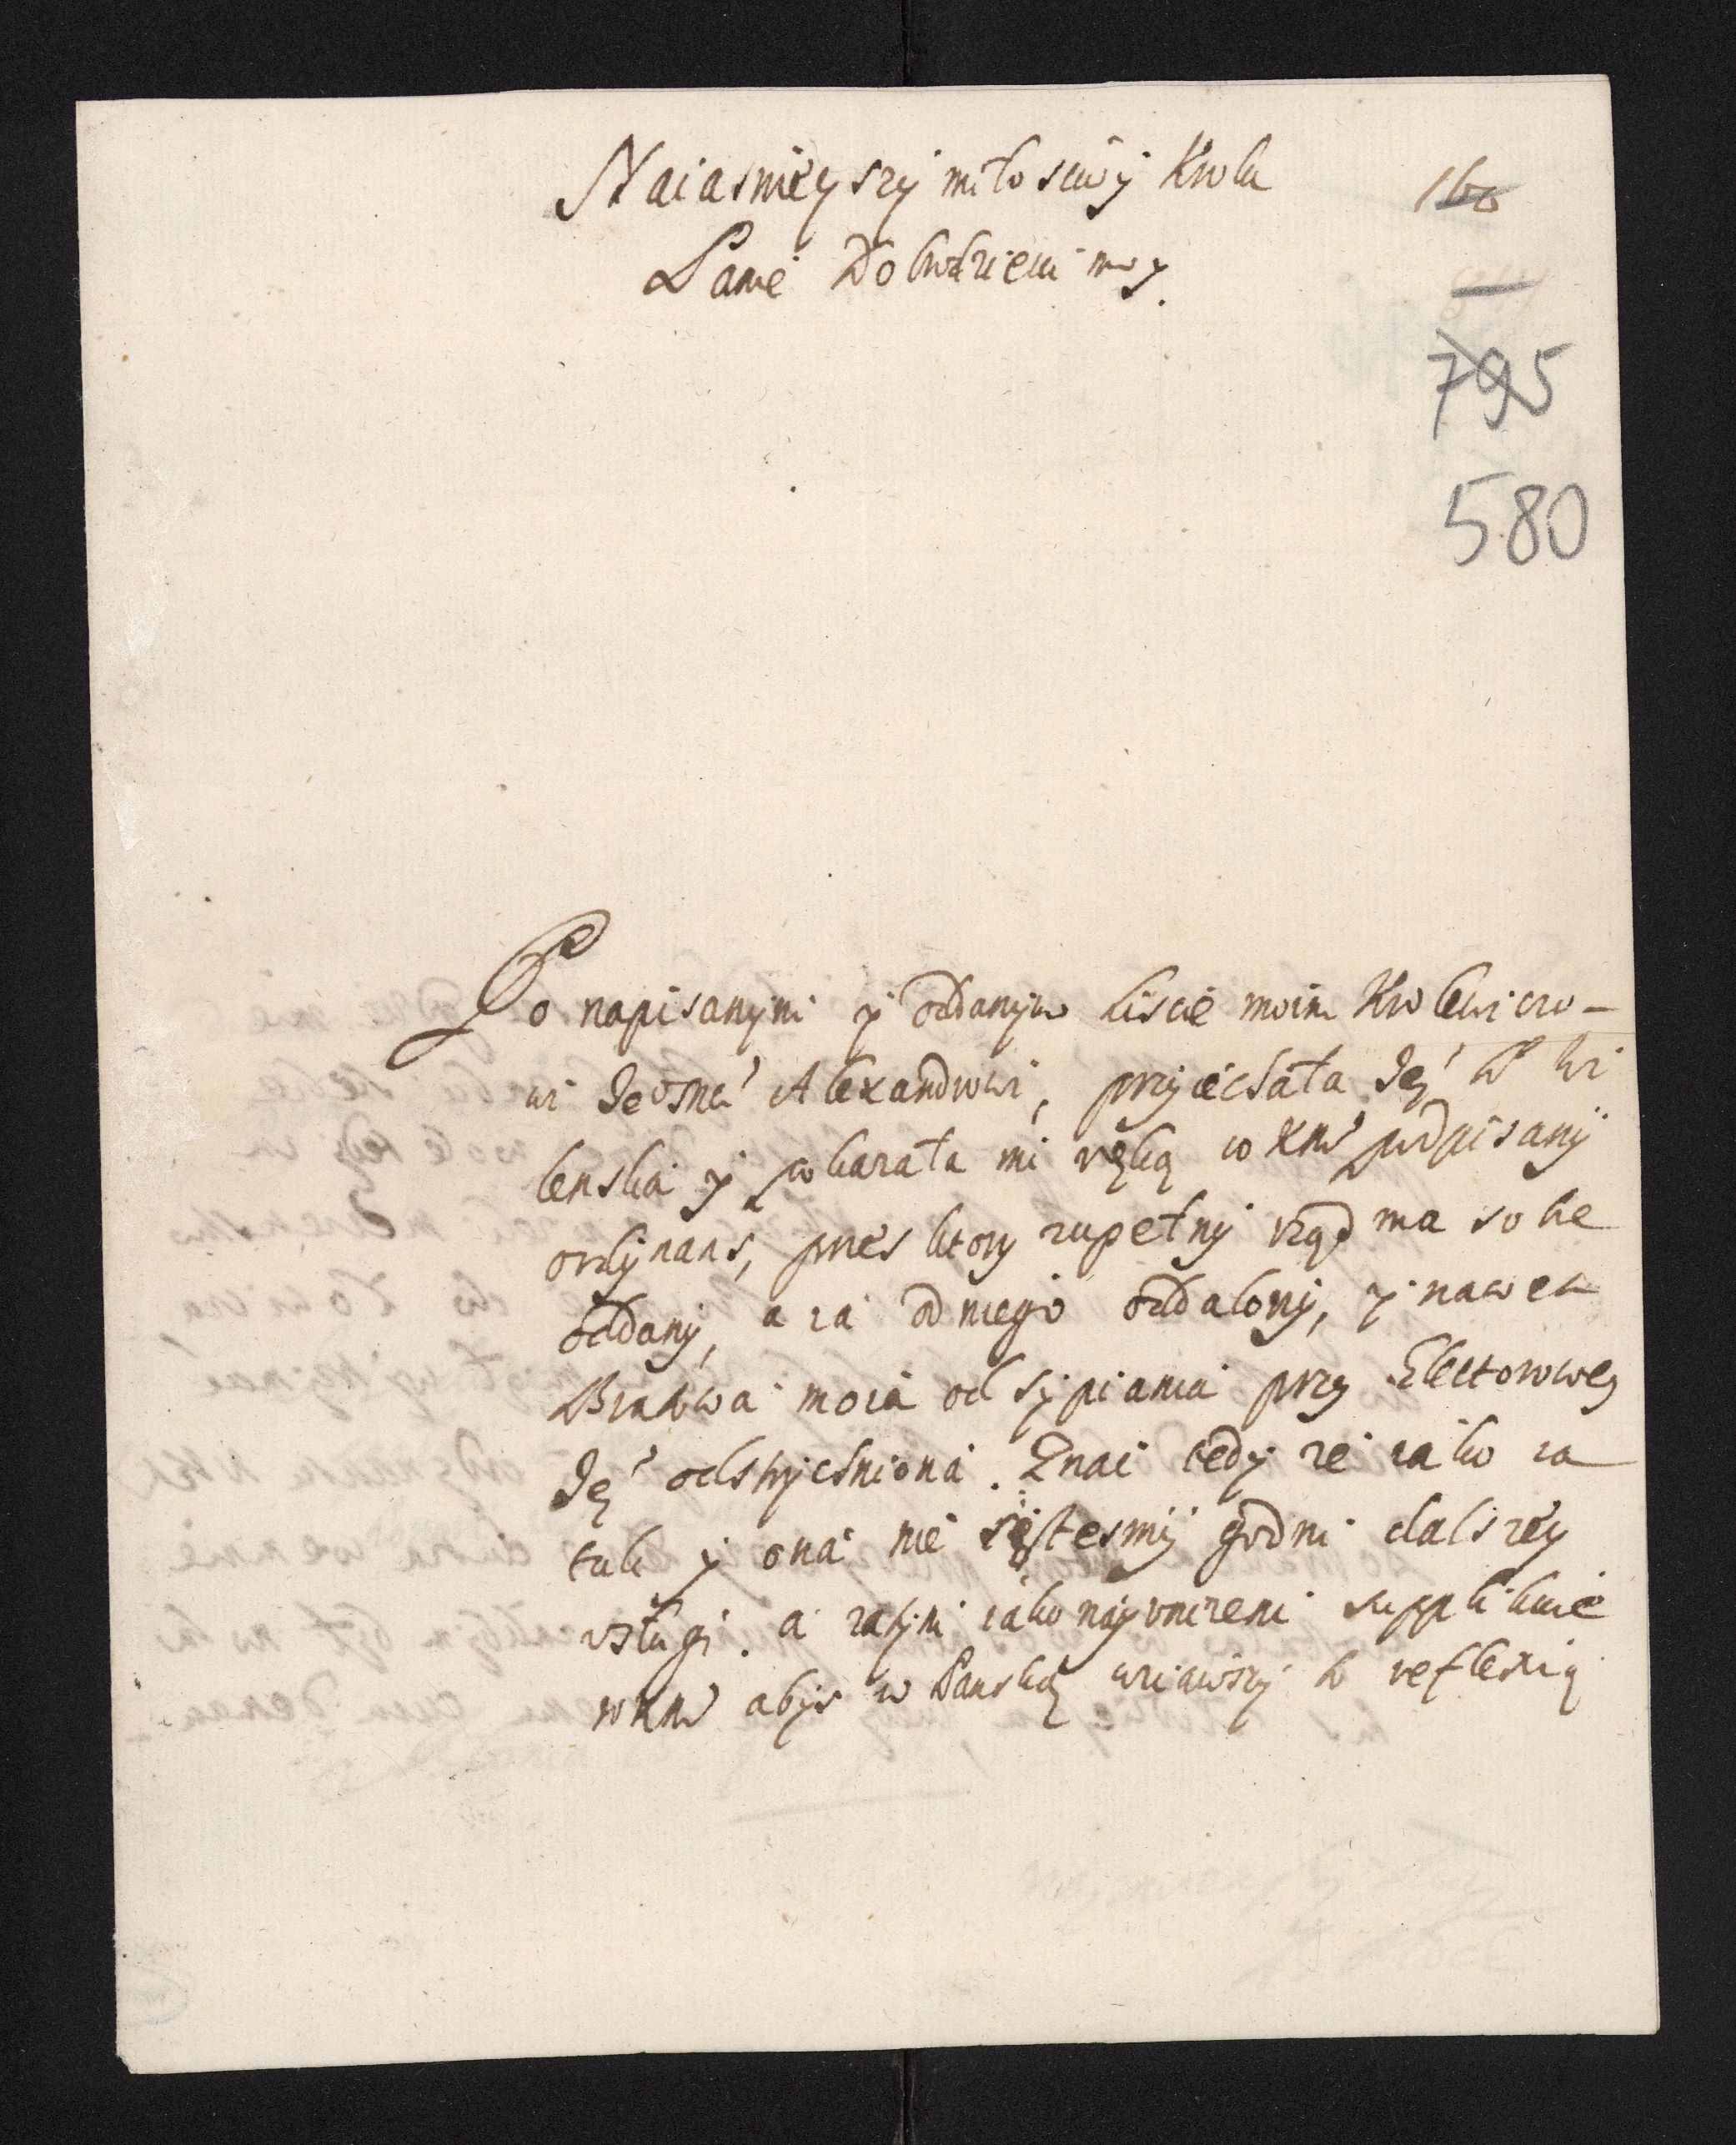 Naiasnieyszy miłosciwy Krolu
160
Panie Dobrodzieiu moy.
795
580
Po napisanym y oddanym liscie moim Krolewiczo-
wi Jeomci Alexandrowi, przyiechała Jeÿ P Wi
lenska y pokazała mi ręką WKMci podpisany
ordynans, przes ktory zupełny rząd ma sobie
oddany, a ia od niego oddalony, y nawet
Bratowa moia od sypiania przy Electorowey
Jeÿ odstrychniona. Znac tedy ze iako ia
tak y ona nie iestesmy godni dalszey
vsługi. a zatym iako nayvnizeni supplikuie
WKMci abys w Panską wziąwszy to reflexią